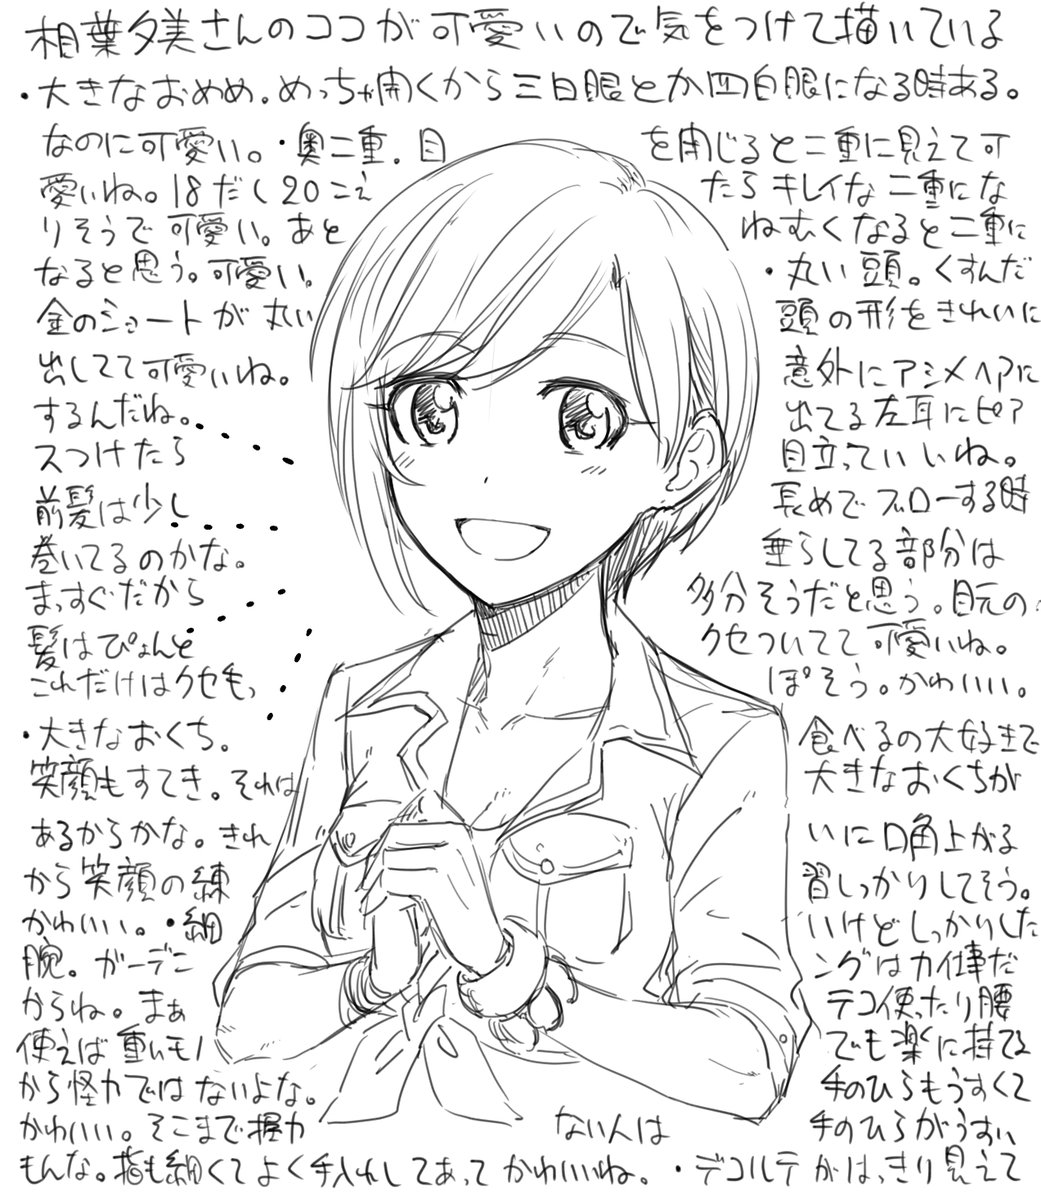 相葉夕美さんのココが可愛いので気をつけて描いている
・大きなおめめ。めっちゃ開くから三白眼とか四白眼になる時ある。
なのに可愛い。・奥二重。目 を閉じると二重に見えて可
愛いね。18だし20こえ たらキレイな二重にな
りそうで可愛い。あと ねむくなると二重に
なると思う。可愛い。 ・丸い頭。くすんだ
金のショートが丸い 頭の形をきれいに
出してて可愛いね。 意外にアシメヘアに
するんだね。 出てる左耳にピア
スつけたら 目立っていいね。
前髪は少し 長めでブローする時
巻いてるのかな。 垂らしてる部分は
まっすぐだから 多分そうだと思う。目元の
髪はぴょんと クセついてて可愛いね。
これだけはクセもっ ぽそう。かわいい。
・大きなおくち。 食べるの大好きで
笑顔もすてき。それは 大きなおくちが
あるからかな。きれ いに口角上がる
から笑顔の練 習しっかりしてそう。
かわいい。・細 いけどしっかりした
腕。ガーデニ ングは力仕事だ
からね。まぁ テコ使ったり腰
使えば重いモノ でも楽に持てる
から怪力ではないよな。 手のひらもうすくて
かわいい。そこまで握力 ない人は 手のひらがうすい
もんな。指も細くてよく手入れしてあってかわいいね。・デコルテがはっきり見えて